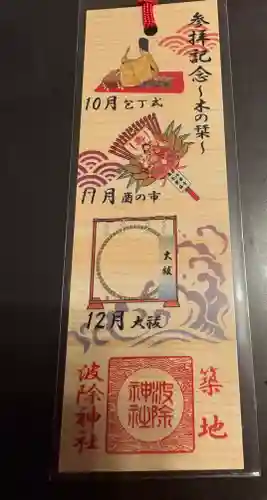 参拝記念
～木の栞～
10月 包丁式
11月 酉の市
大祓
12月 大祓
築地
波除神社
波除
神社